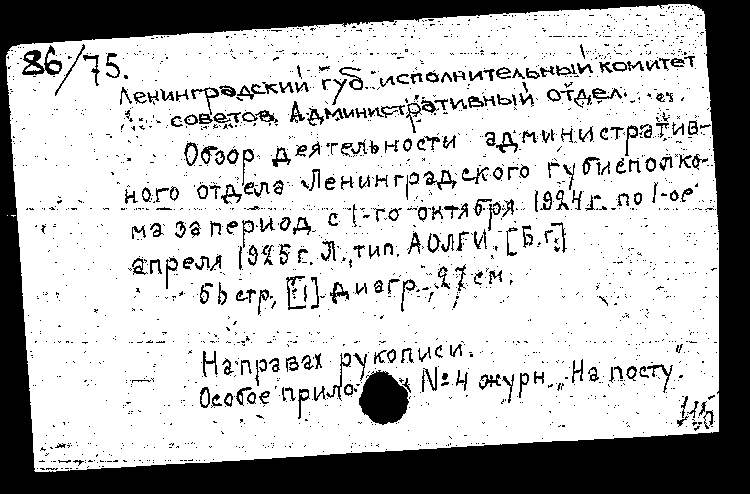 86/75.
Ленинградский губ. исполнительный комитет
советов. Административный отдел.
Обзор деятельности административ-
ного отдела Ленинградского губисполко-
ма за период с 1-го октября 1924 г. по 1-ое
апреля 1925 г. Л., тип. АОЛГИ. [Б.г.]
56 стр., [1] диагр., 27 см.
На правах рукописи.
Особое прило к № 4 журн. „На посту“.